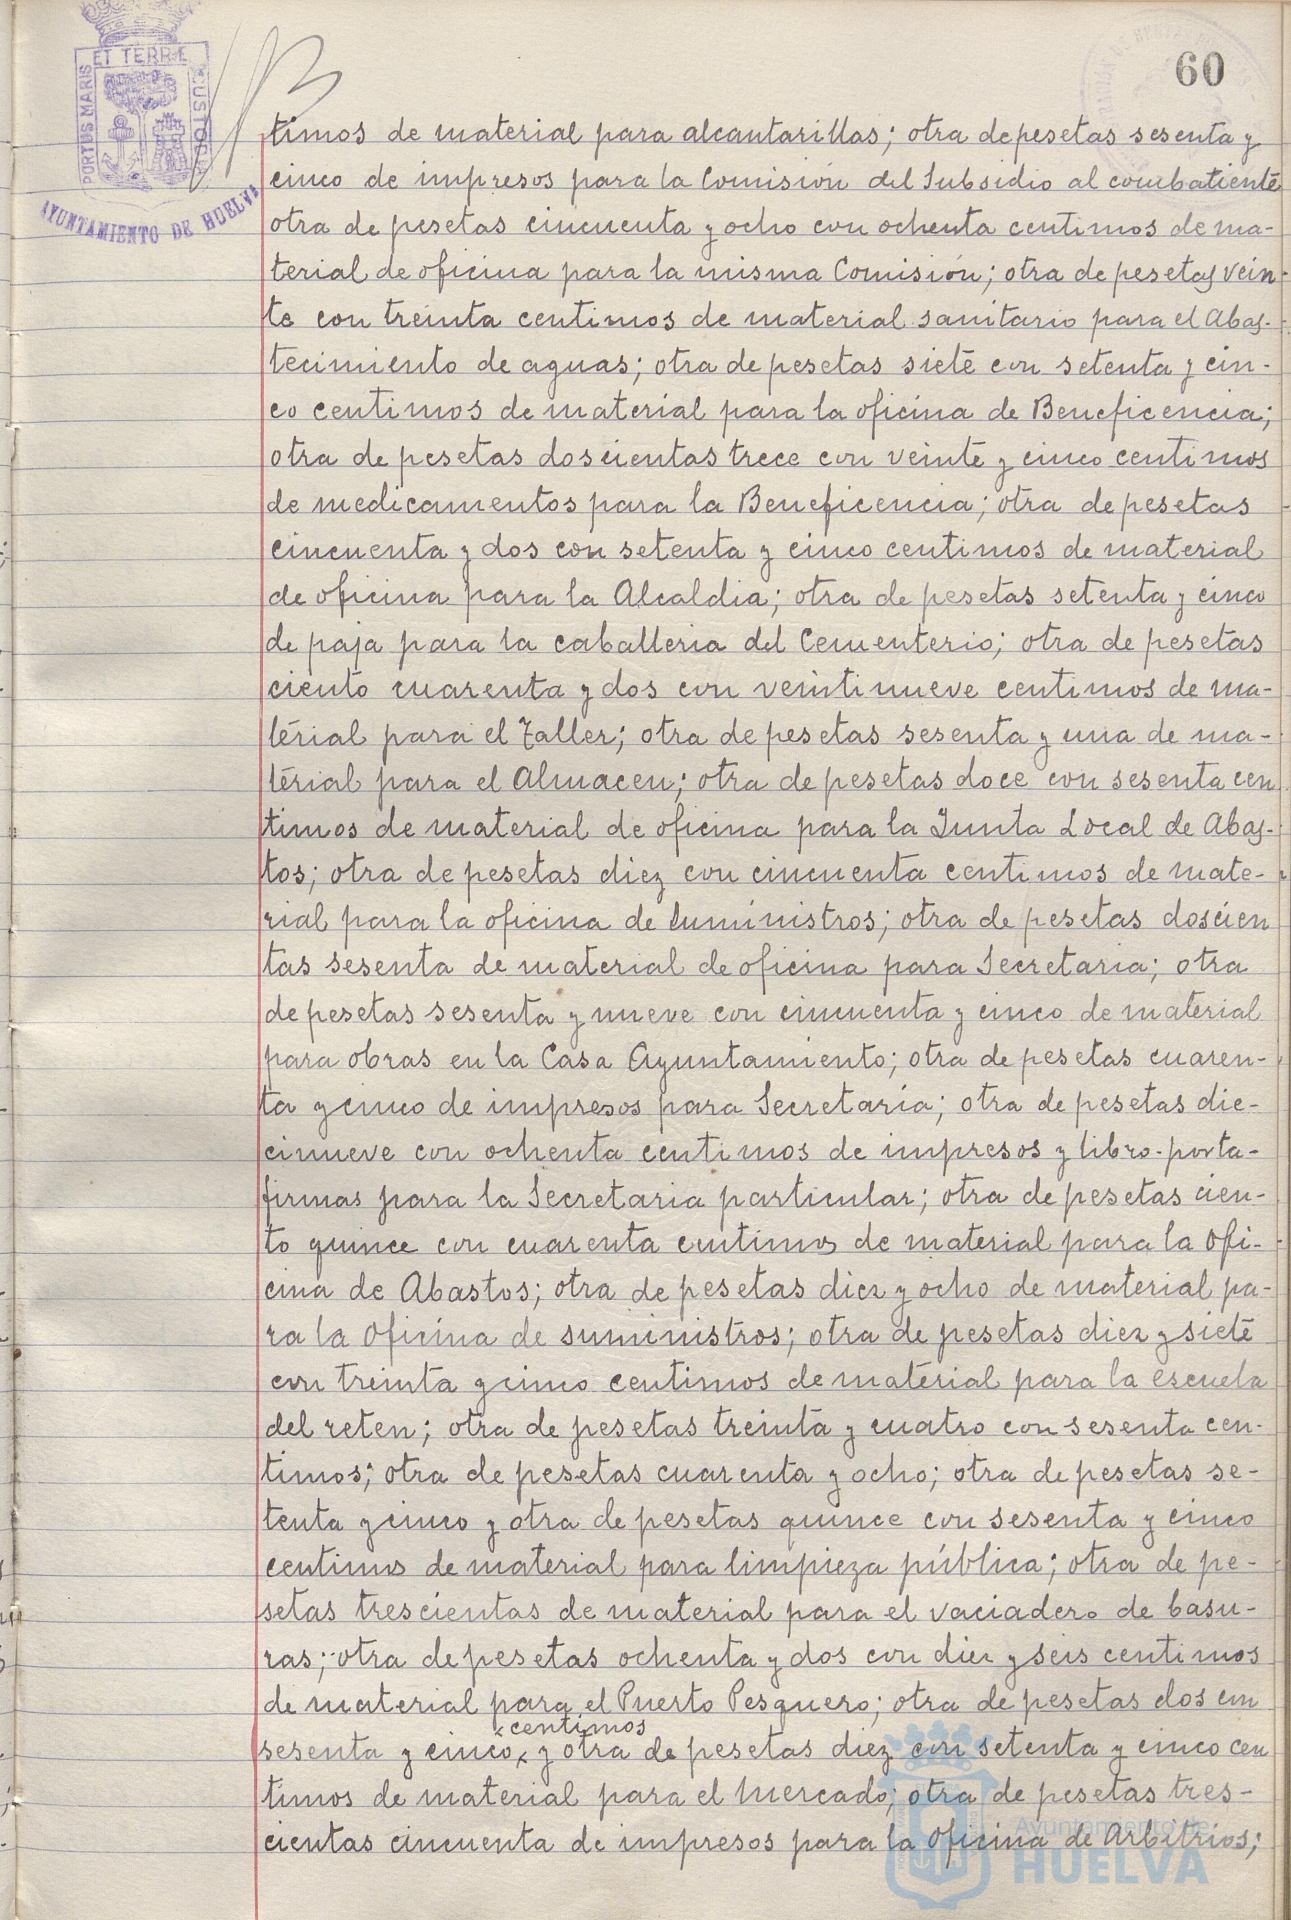 60
ET TERRÆ
PORTUS MARIS
CUSTODIA
AYUNTAMIENTO DE HUELVA
timos de material para alcantarillas; otra de pesetas sesenta y
cinco de impresos para la Comisión del Subsidio al combatiente
otra de pesetas cincuenta y ocho con ochenta centimos de ma-
terial de oficina para la misma Comisión; otra de pesetas vein-
te con treinta centimos de material sanitario para el Abas-
tecimiento de aguas; otra de pesetas siete con setenta y cin-
co centimos de material para la oficina de Beneficencia;
otra de pesetas doscientas trece con veinte y cinco centimos
de medicamentos para la Beneficencia; otra de pesetas
cincuenta y dos con setenta y cinco centimos de material
de oficina para la Alcaldia; otra de pesetas setenta y cinco
de paja para la caballeria del Cementerio; otra de pesetas
ciento cuarenta y dos con veintinueve centimos de ma-
terial para el Taller; otra de pesetas sesenta y una de ma-
terial para el Almacen; otra de pesetas doce con sesenta cen
timos de material de oficina para la Junta Local de Abas-
tos; otra de pesetas diez con cincuenta centimos de mate-
rial para la oficina de Suministros; otra de pesetas doscien
tas sesenta de material de oficina para Secretaria; otra
de pesetas sesenta y nueve con cincuenta y cinco de material
para obras en la Casa Ayuntamiento; otra de pesetas cuaren-
ta y cinco de impresos para Secretaría; otra de pesetas die-
cinueve con ochenta centimos de impresos y libro-porta-
firmas para la Secretaria particular; otra de pesetas cien-
to quince con cuarenta centimos de material para la Ofi-
cina de Abastos; otra de pesetas diez y ocho de material pa-
ra la Oficina de suministros; otra de pesetas diez y siete
con treinta y cinco centimos de material para la escuela
del reten; otra de pesetas treinta y cuatro con sesenta cen-
timos; otra de pesetas cuarenta y ocho; otra de pesetas se-
tenta y cinco y otra de pesetas quince con sesenta y cinco
centimos de material para limpieza pública; otra de pe-
setas trescientas de material para el vaciadero de basu-
ras; otra de pesetas ochenta y dos con diez y seis centimos
de material para el Puerto Pesquero; otra de pesetas dos con
centimos
sesenta y cinco, y otra de pesetas diez con setenta y cinco cen
timos de material para el Mercado; otra de pesetas tres-
cientas cincuenta de impresos para la Oficina de Arbitrios;
Ayuntamiento de
HUELVA